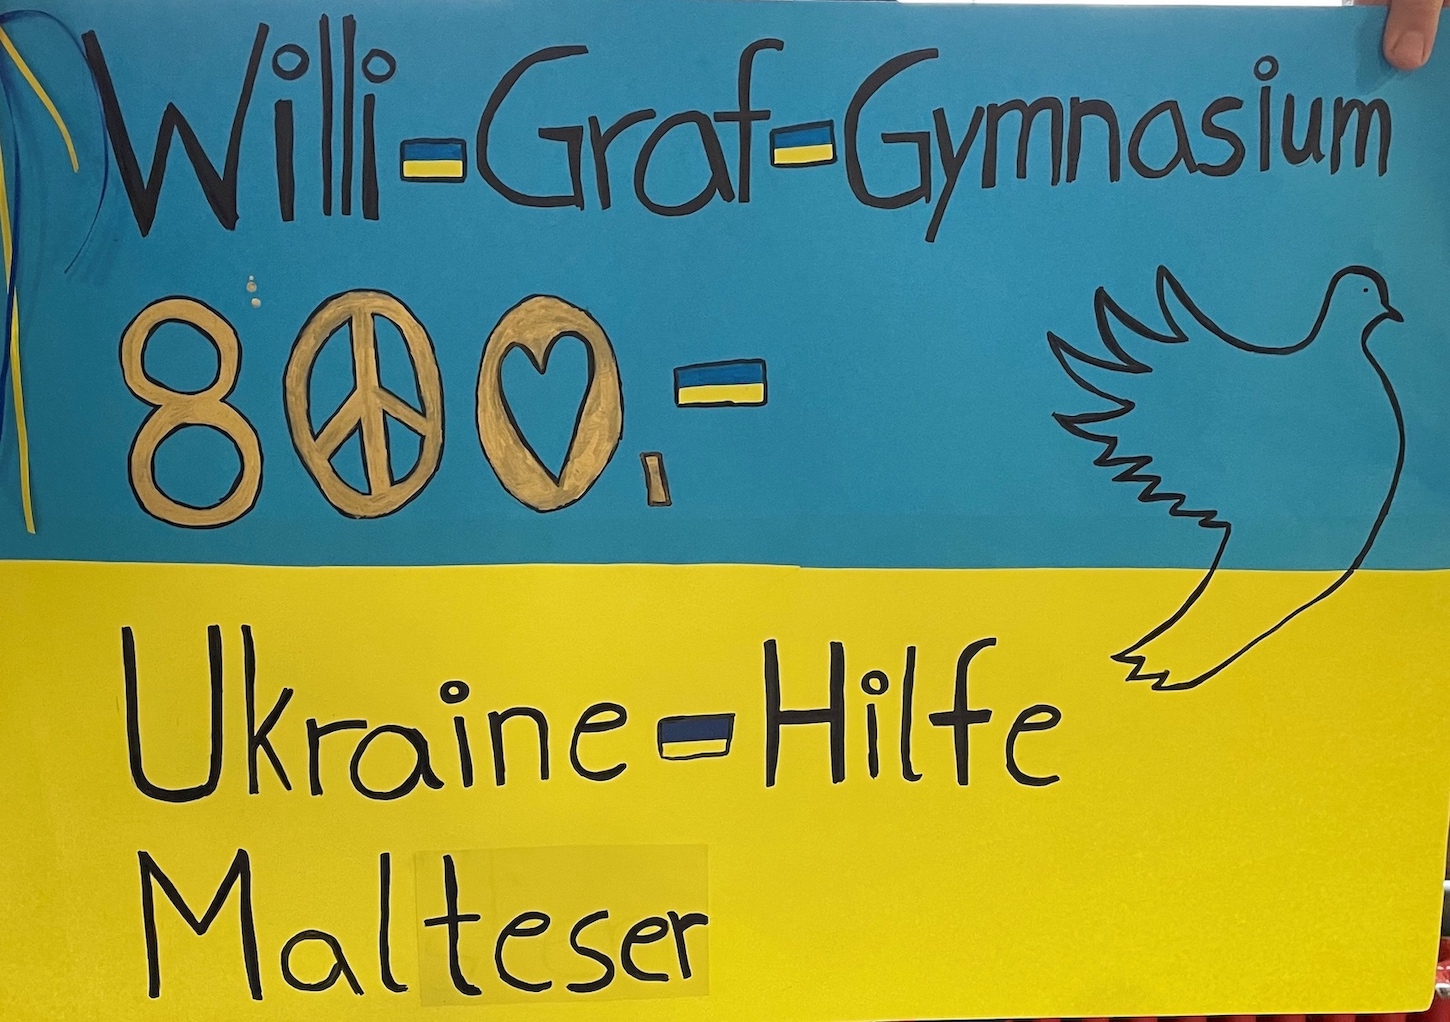 Willi-Graf-Gymnasium
800,-
Ukraine-Hilfe
Malteser